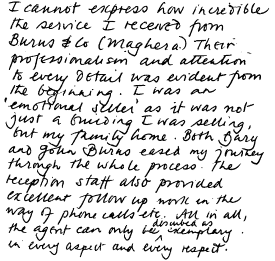 I cannot express how incredible
the service I received from
Burns & Co (Maghera.) Their
professionalism and attention
to every detail was evident from
the beginning. I was an
'emotional seller' as it was not
just a building I was selling,
but my family home. Both Bary
and John Burns eased my journey
through the whole process. The
reception staff also provided
excellent follow up work in the
way of phone calls etc. All in all,
the agent can only be described as exemplary.
in every aspect and every respect.